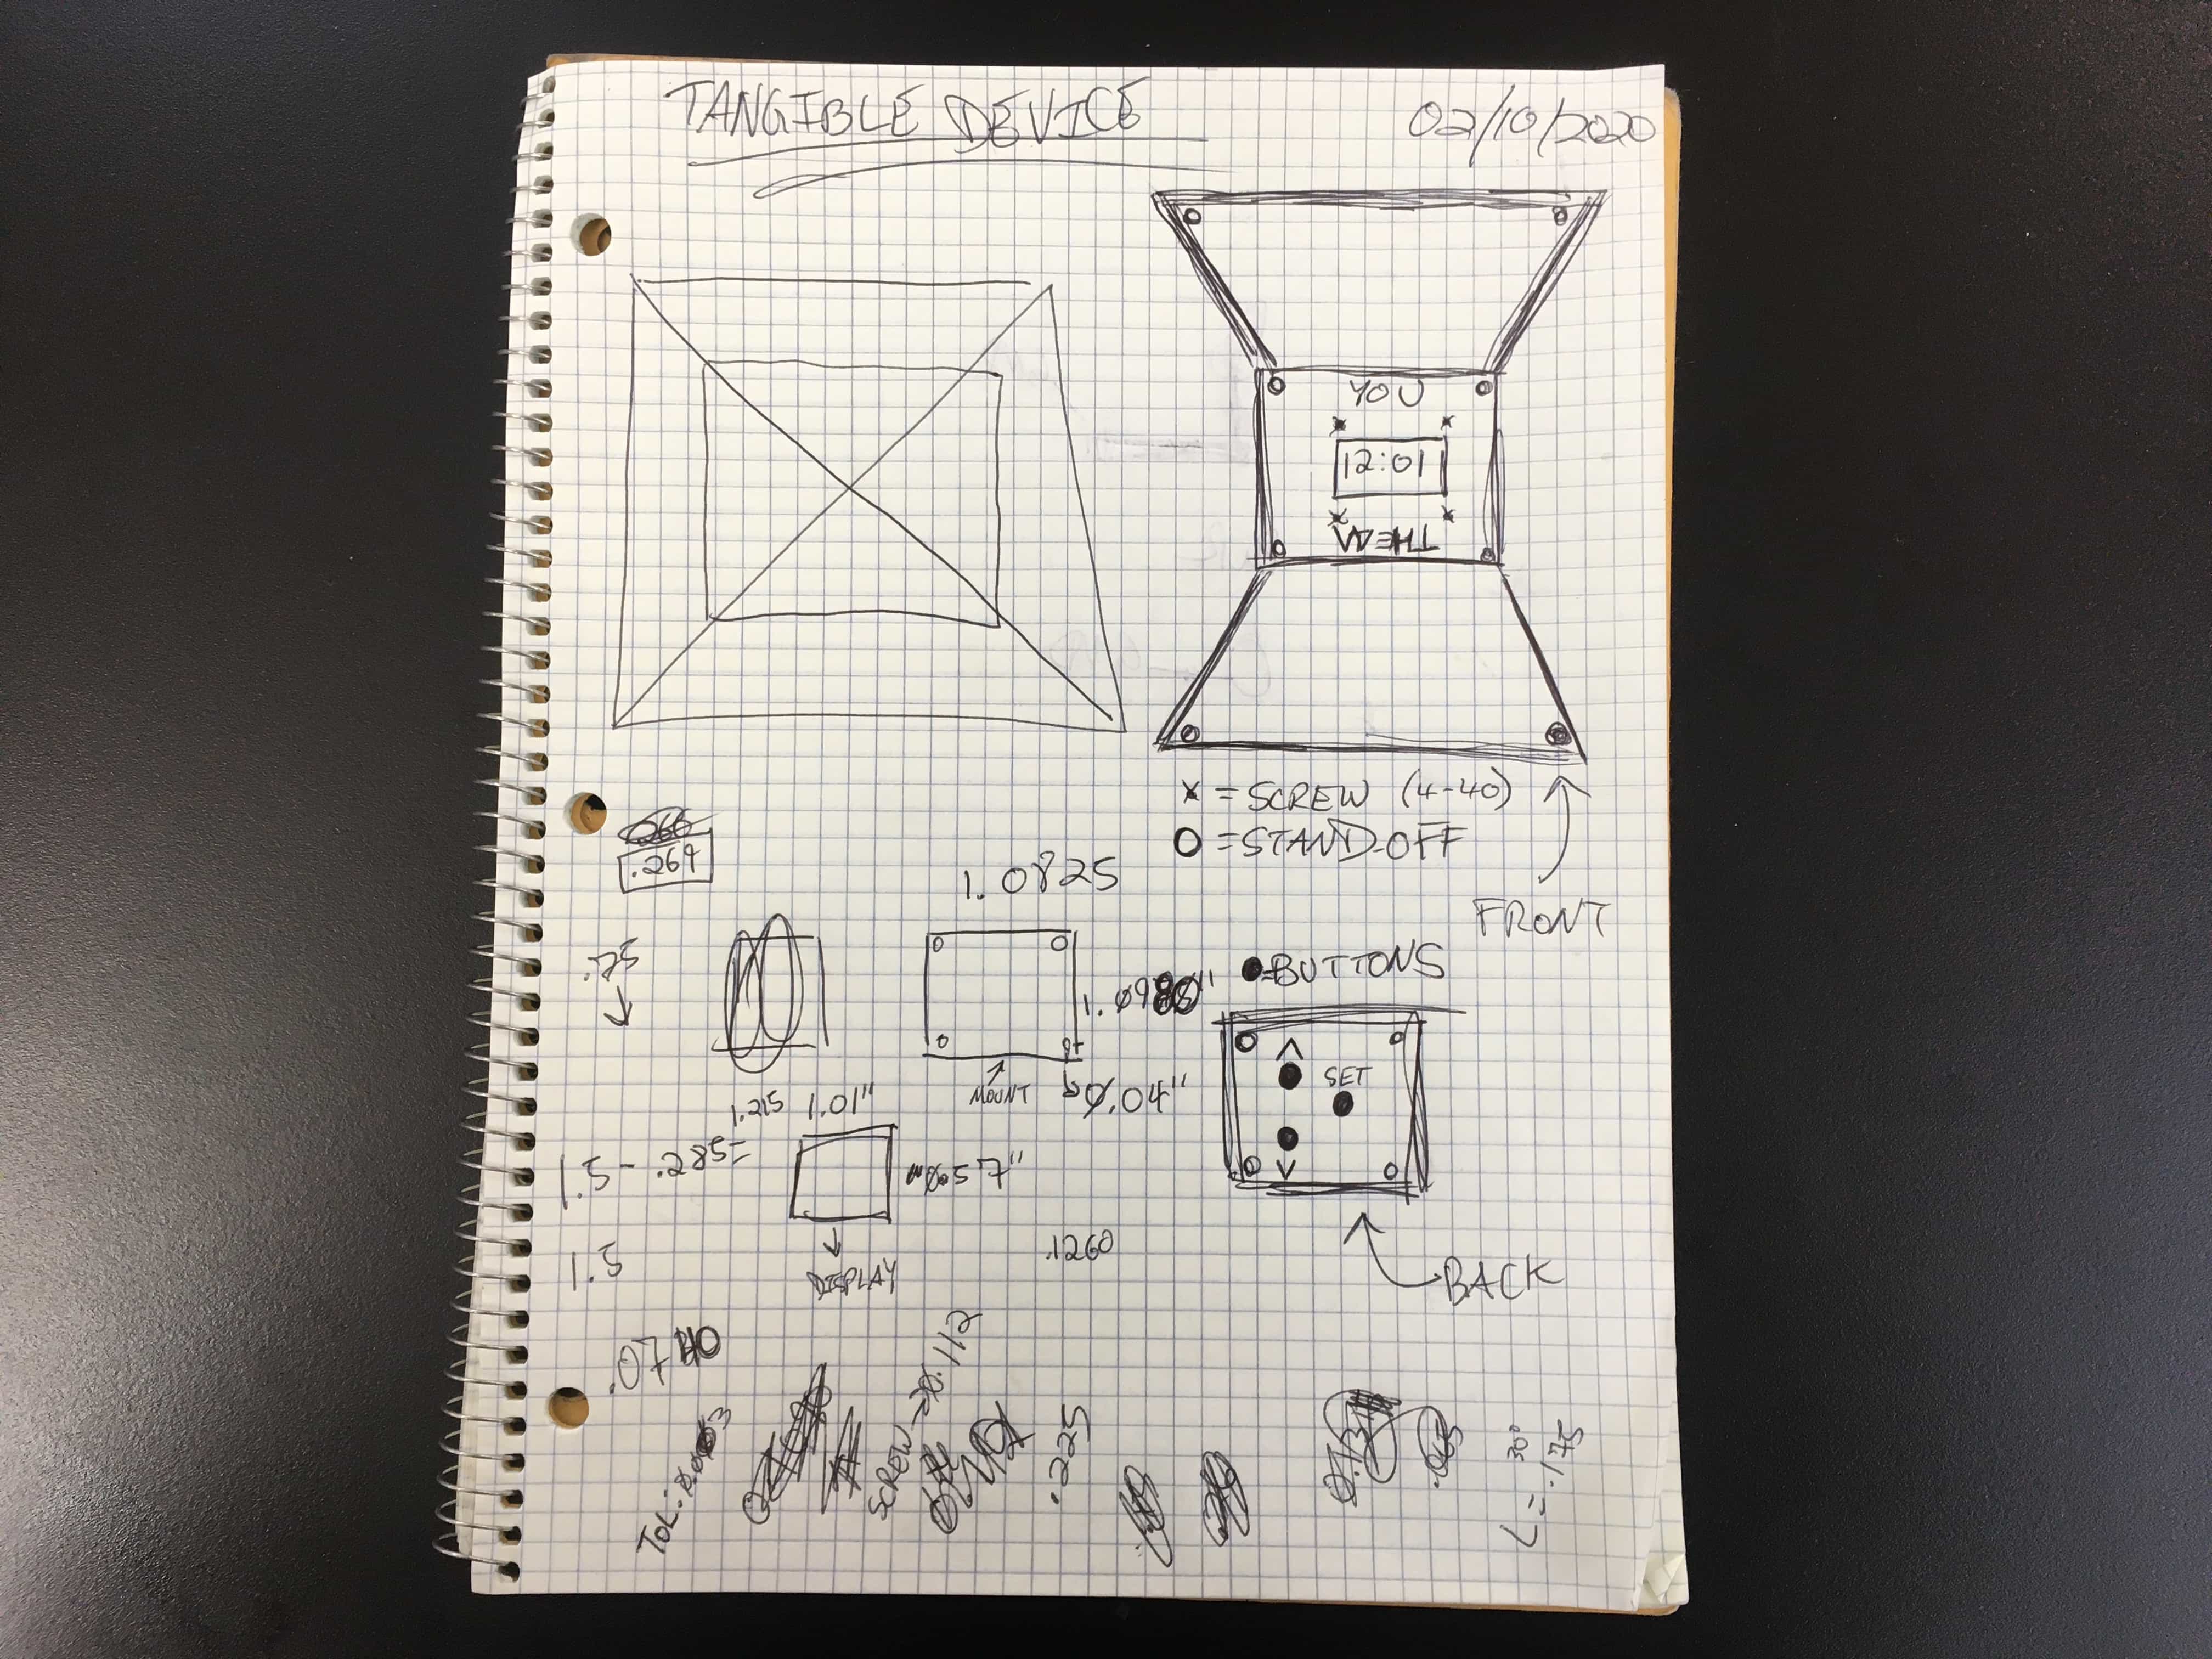 TANGIBLE DEVICE
02/10/2020
YOU
12:01
THEM
x = SCREW (4-40)
O = STAND-OFF
FRONT
.269
1.0825
.75
MOUNT
0.04"
●=BUTTONS
^
SET
v
BACK
1.215 1.01"
1.5 - .285=
0.57"
DISPLAY
.1260
1.5
.0740
TOL:
SCREW → 0.112
.225
.065
L = .175
30°